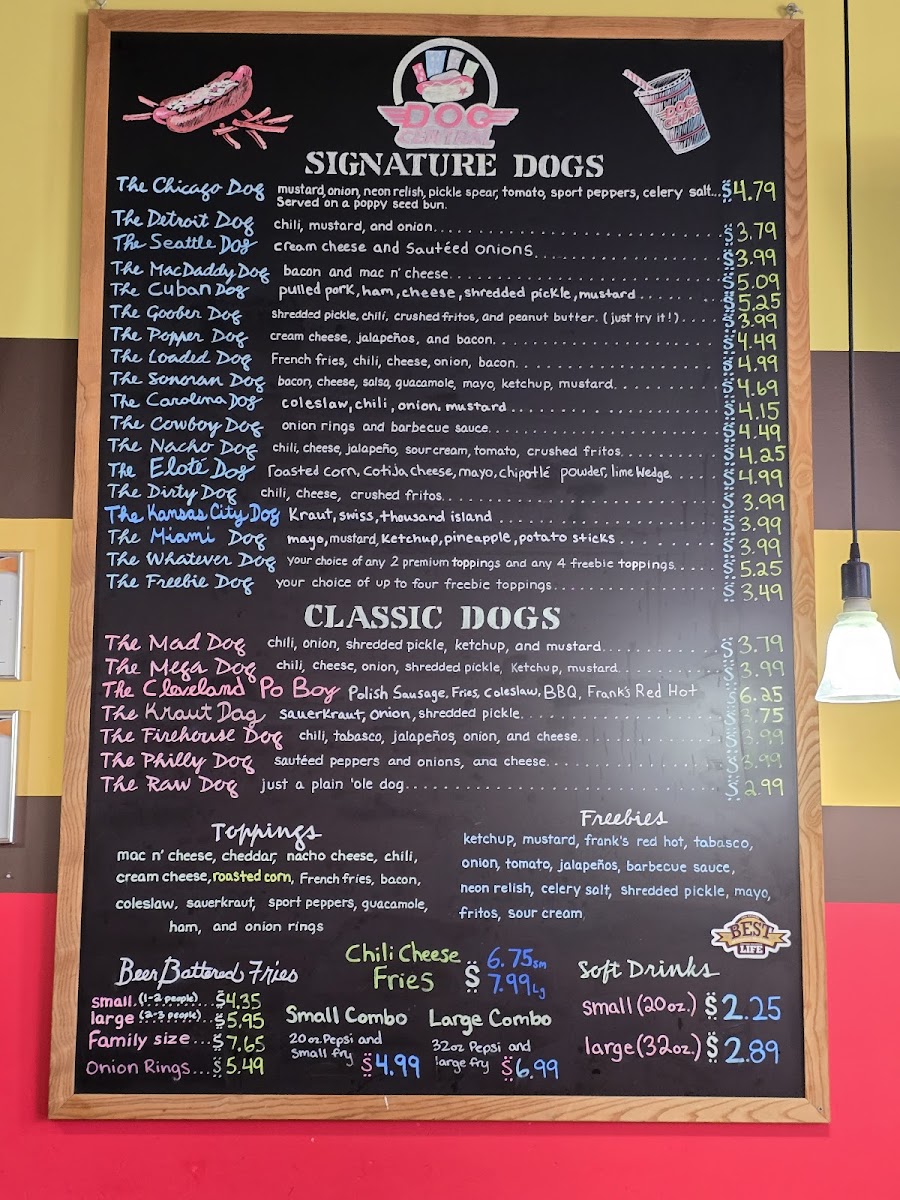 DOG
CENTRAL
DOG
CENTRAL
SIGNATURE DOGS
The Chicago Dog mustard, onion, neon relish, pickle spear, tomato, sport peppers, celery salt... $4.79
Served on a poppy seed bun.
The Detroit Dog chili, mustard, and onion. $3.79
The Seattle Dog cream cheese and Sautéed onions. $3.99
The MacDaddy Dog bacon and mac n' cheese. $5.09
The Cuban Dog pulled pork, ham, cheese, shredded pickle, mustard $5.25
The Goober Dog shredded pickle, chili, crushed fritos, and peanut butter. (just try it!) $3.99
The Popper Dog cream cheese, jalapeños, and bacon. $4.49
The Loaded Dog French fries, chili, cheese, onion, bacon. $4.99
The Sonoran Dog bacon, cheese, salsa, guacamole, mayo, ketchup, mustard. $4.69
The Carolina Dog coleslaw, chili, onion, mustard $4.15
The Cowboy Dog onion rings and barbecue sauce. $4.49
The Nacho Dog chili, cheese, jalapeño, sour cream, tomato, crushed fritos. $4.25
The Elote Dog roasted corn, Cotija cheese, mayo, chipotle powder, lime wedge. $4.99
The Dirty Dog chili, cheese, crushed fritos. $3.99
The Kansas City Dog Kraut, swiss, thousand island $3.99
The Miami Dog mayo, mustard, Ketchup, pineapple, potato sticks $3.99
The Whatever Dog your choice of any 2 premium toppings and any 4 freebie toppings. $5.25
The Freebie Dog your choice of up to four freebie toppings. $3.49
CLASSIC DOGS
The Mad Dog chili, onion, shredded pickle, ketchup, and mustard. $3.79
The Mega Dog chili, cheese, onion, shredded pickle, Ketchup, mustard. $3.99
The Cleveland Po Boy Polish Sausage, Fries, Coleslaw, BBQ, Frank's Red Hot $6.25
The Kraut Dag sauerkraut, onion, shredded pickle. $3.75
The Firehouse Dog chili, tabasco, jalapeños, onion, and cheese. $3.99
The Philly Dog sautéed peppers and onions, and cheese. $3.99
The Raw Dog just a plain 'ole dog. $2.99
Toppings
mac n' cheese, cheddar, nacho cheese, chili,
cream cheese, roasted corn, French fries, bacon,
coleslaw, sauerkraut, sport peppers, guacamole,
ham, and onion rings
Freebies
ketchup, mustard, frank's red hot, tabasco,
onion, tomato, jalapeños, barbecue sauce,
neon relish, celery salt, shredded pickle, mayo,
fritos, sour cream
BEST
LIFE
Beer Battered Fries
small. (1-2 people)... $4.35
large (2-3 people)... $5.95
Family size... $7.65
Onion Rings... $5.49
Chili Cheese
Fries $ 6.75 sm
7.99 Lg
Small Combo
20 oz. Pepsi and
Small fry $4.99
Large Combo
32oz Pepsi and
large fry $6.99
Soft Drinks
small (20 oz.) $2.25
large (32oz.) $2.89